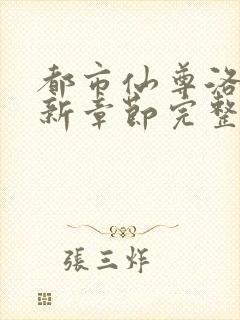 都市仙尊洛
新章節完整
張三炸